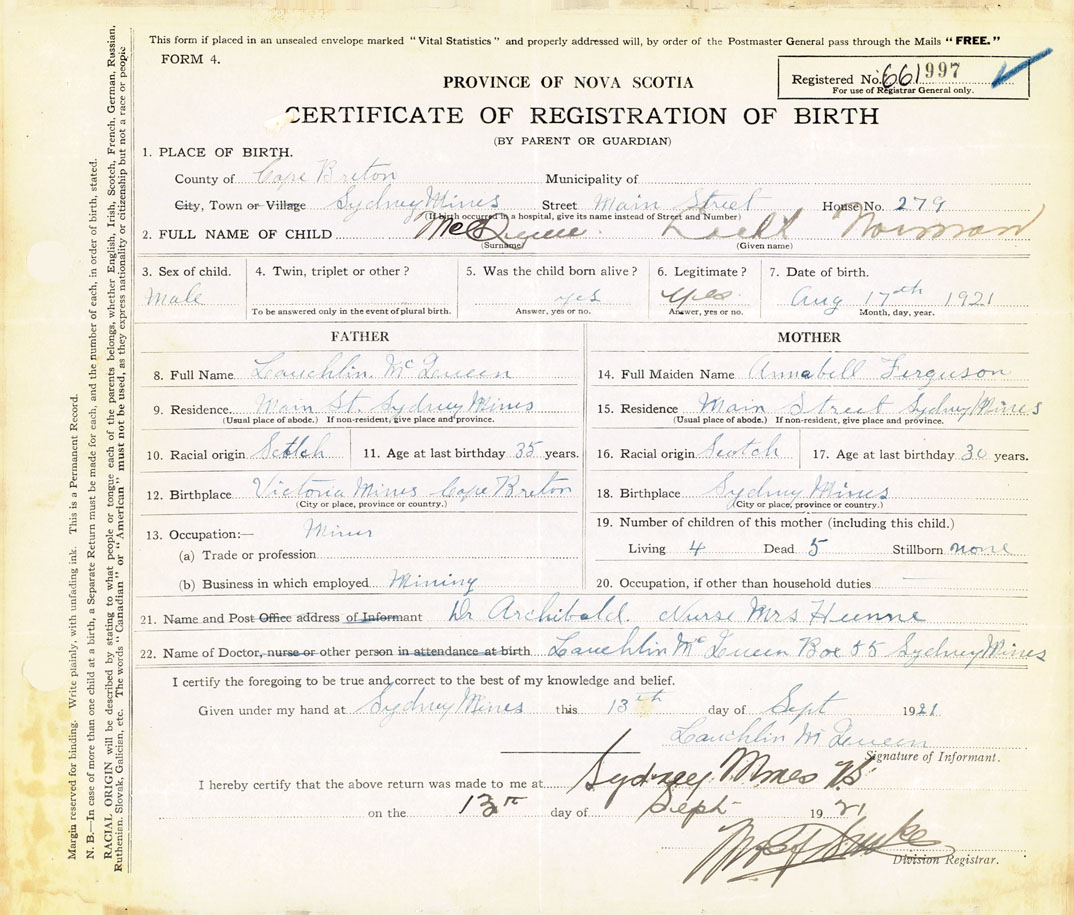 This form if placed in an unsealed envelope marked "Vital Statistics" and properly addressed will, by order of the Postmaster General pass through the Mails "FREE."
FORM 4.
Registered No. 661997
For use of Registrar General only.
PROVINCE OF NOVA SCOTIA
CERTIFICATE OF REGISTRATION OF BIRTH
(BY PARENT OR GUARDIAN)
1. PLACE OF BIRTH.
County of Cape Breton Municipality of
City, Town or Village Sydney Mines Street Main Street House No. 279
(If birth occurred in a hospital, give its name instead of Street and Number)
2. FULL NAME OF CHILD Norman
(Surname) (Given name)
3. Sex of child. 4. Twin, triplet or other? 5. Was the child born alive? 6. Legitimate? 7. Date of birth.
Male yes yes Aug 17th 1921
To be answered only in the event of plural birth. Answer, yes or no. Answer, yes or no. Month, day, year.
FATHER MOTHER
8. Full Name Lauchlin McQueen 14. Full Maiden Name Annabell Ferguson
9. Residence. Main St. Sydney Mines 15. Residence Main Street Sydney Mines
(Usual place of abode.) If non-resident, give place and province. (Usual place of abode.) If non-resident, give place and province.
10. Racial origin Scotch 11. Age at last birthday 35 years. 16. Racial origin Scotch 17. Age at last birthday 30 years.
12. Birthplace Victoria Mines Cape Breton 18. Birthplace Sydney Mines
(City or place, province or country.) (City or place, province or country.)
13. Occupation:— Miner 19. Number of children of this mother (including this child.)
(a) Trade or profession Living 4 Dead 5 Stillborn none
(b) Business in which employed Mining 20. Occupation, if other than household duties
21. Name and Post Office address of Informant Dr Archibald. Nurse Mrs
22. Name of Doctor, nurse or other person in attendance at birth Lauchlin McQueen Box 55 Sydney Mines
I certify the foregoing to be true and correct to the best of my knowledge and belief.
Given under my hand at Sydney Mines this 13th day of Sept 1921
Lauchlin McQueen
Signature of Informant.
I hereby certify that the above return was made to me at Sydney Mines
on the 13th day of Sept 1921
Division Registrar.
Margin reserved for binding. Write plainly, with unfading ink. This is a Permanent Record.
N. B.—In case of more than one child at a birth, a Separate Return must be made for each, and the number of each, in order of birth, stated.
RACIAL ORIGIN will be described by stating to what people or tongue each of the parents belongs, whether English, Irish, Scotch, French, German, Russian,
Ruthenian, Slovak, Galician, etc. The words "Canadian" or "American" must not be used, as they express nationality or citizenship but not a race or people